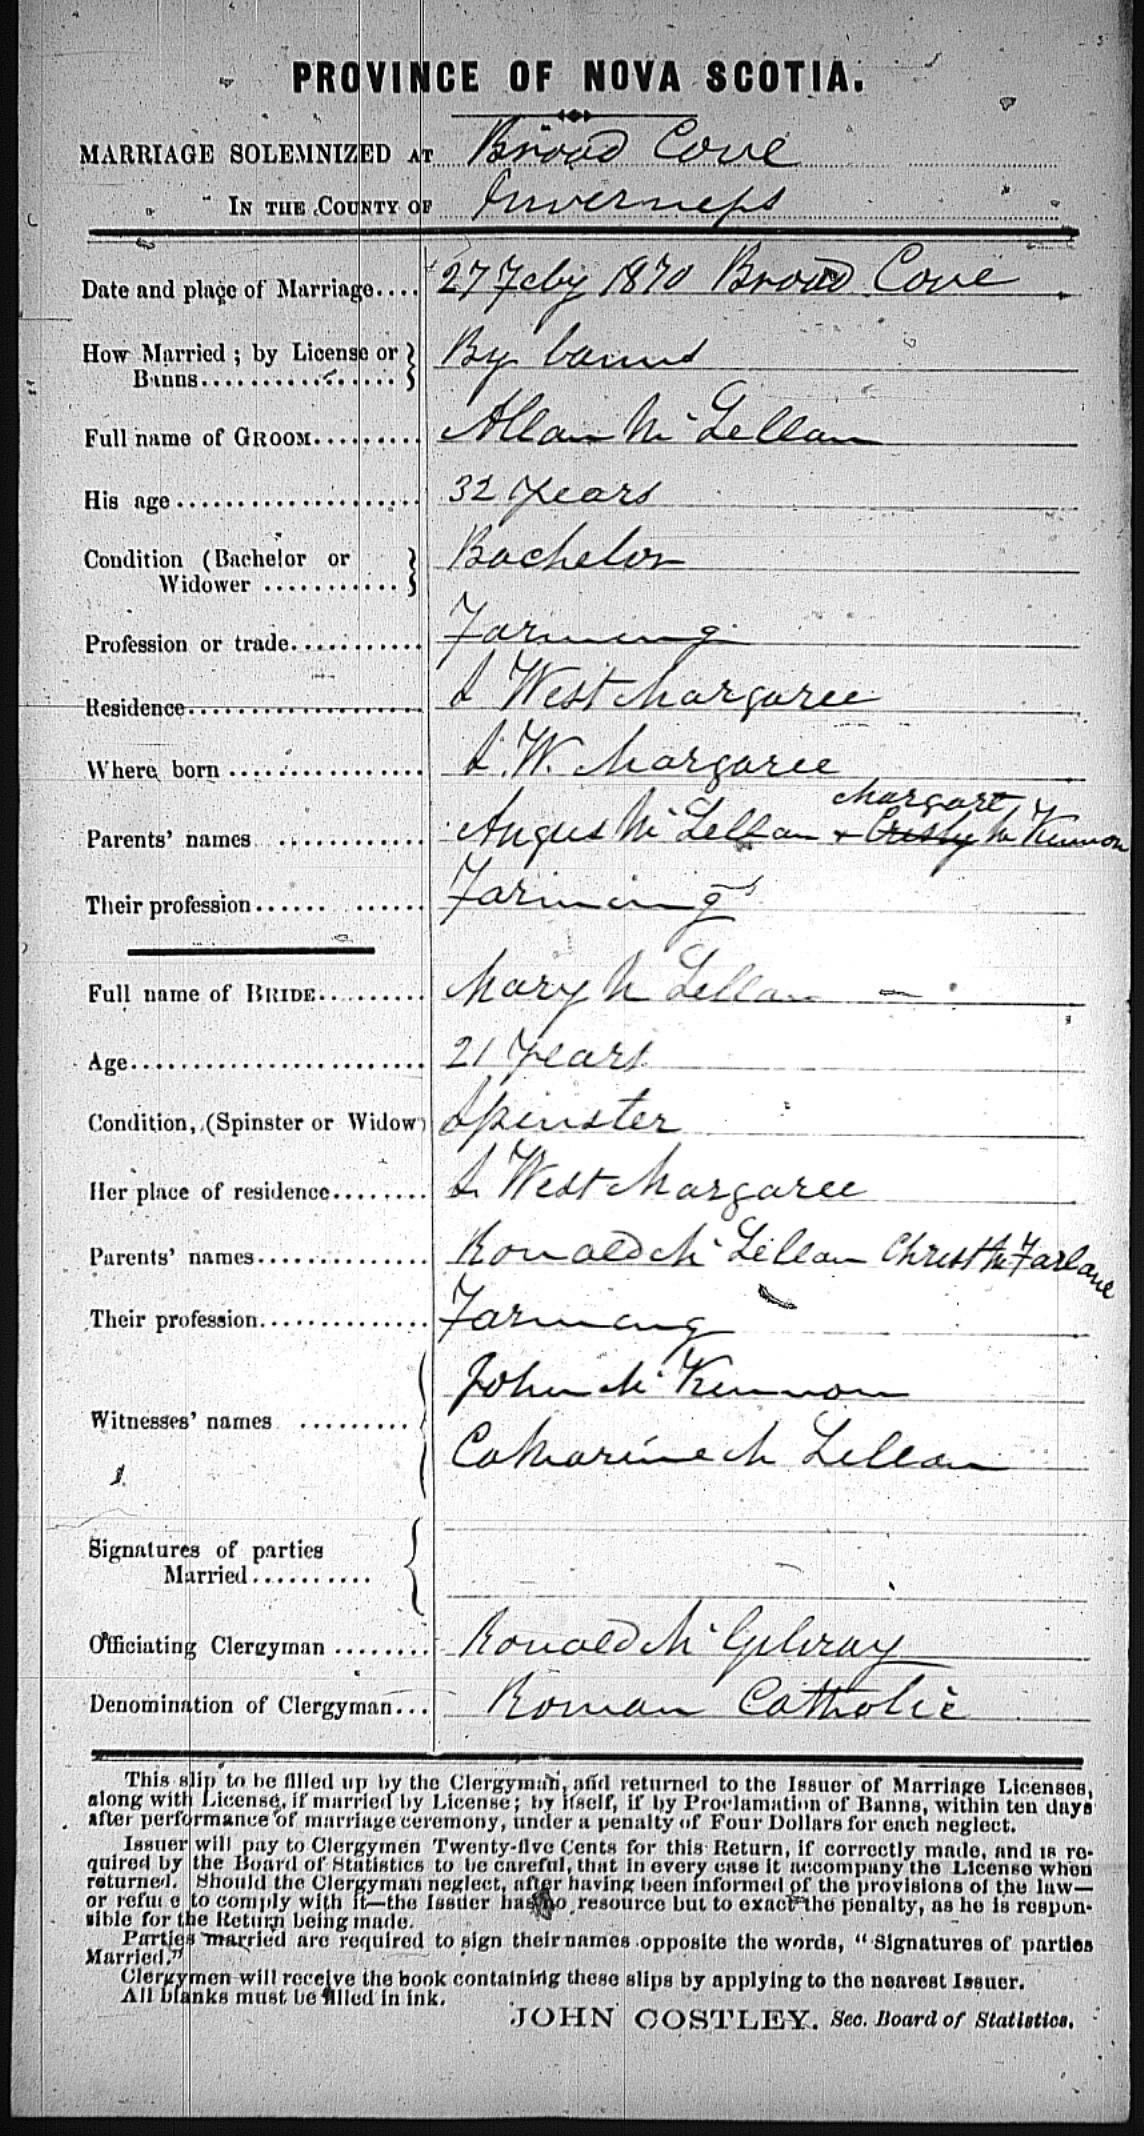 PROVINCE OF NOVA SCOTIA.
MARRIAGE SOLEMNIZED AT Broad Cove
IN THE COUNTY OF Inverness
Date and place of Marriage.... 27 Feby 1870 Broad Cove
How Married ; by License or } By banns
Banns................
Full name of GROOM......... Allan Mc Lellan
His age..................... 32 Years
Condition (Bachelor or } Bachelor
Widower ...........
Profession or trade........... Farming
Residence.................... S West Margaree
Where born ................. S. W. Margaree
Margart
Parents' names ............ Angus Mc Lellan + Cristy Mc Kinnon
Their profession...... ...... Farming
Full name of BRIDE......... Mary Mc Lellan
Age........................ 21 Years
Condition, (Spinster or Widow) Spinster
Her place of residence........ S. West Margaree
Parents' names.............. Ronald Mc Lellan Christ Mc Farlane
Their profession.............. Farming
John Mc Kinnon
Witnesses' names .........
Catharine Mc Lellan
Signatures of parties
Married..........
Officiating Clergyman ........ Ronald Mc Gilvray
Denomination of Clergyman... Roman Catholic
This slip to be filled up by the Clergyman, and returned to the Issuer of Marriage Licenses,
along with License, if married by License; by itself, if by Proclamation of Banns, within ten days
after performance of marriage ceremony, under a penalty of Four Dollars for each neglect.
Issuer will pay to Clergymen Twenty-five Cents for this Return, if correctly made, and is re-
quired by the Board of Statistics to be careful, that in every case it accompany the License when
returned. Should the Clergyman neglect, after having been informed of the provisions of the law—
or refuse to comply with it—the Issuer has no resource but to exact the penalty, as he is respon-
sible for the Return being made.
Parties married are required to sign their names opposite the words, "Signatures of parties
Married."
Clergymen will receive the book containing these slips by applying to the nearest Issuer.
All blanks must be filled in ink.
JOHN COSTLEY. Sec. Board of Statistics.